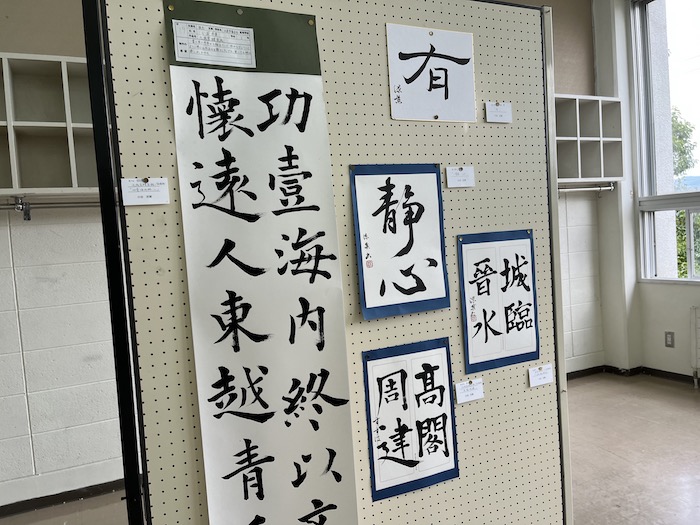 功壹海内終以
懷遠人東越青
有
静心
城臨
晉水
髙閣
周建